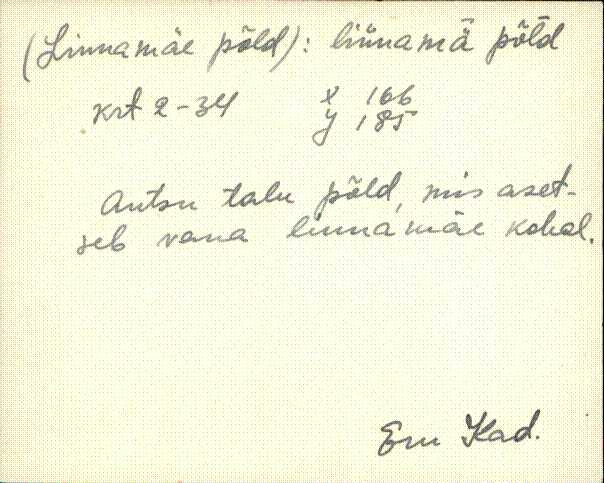 (Linnamäe põld): liinamä põld
krt 2-34 x 166
y 185
Antsu talu põld, mis aset-
seb vana linnamäe kohal.
Em Kad.